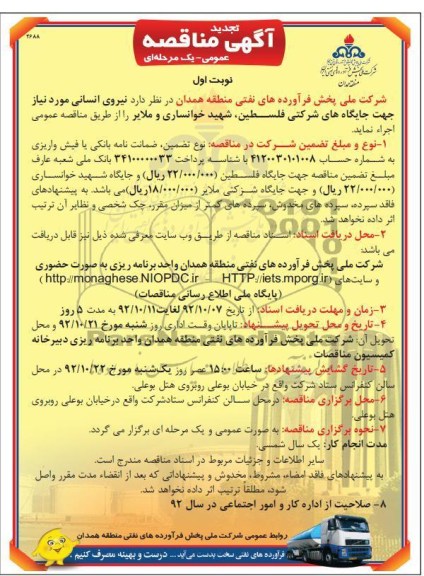 ۲۶۸۸
تجدید
آگهی مناقصه
عمومی- یک مرحله‌ای
منطقه همدان
نوبت اول
شرکت ملی پخش فرآورده های نفتی منطقه همدان در نظر دارد نیروی انسانی مورد نیاز
جهت جایگاه های شرکتی فلسطین، شهید خوانساری و ملایر را از طریق مناقصه عمومی
اجراء نماید.
۱-نوع و مبلغ تضمین شرکت در مناقصه: نوع تضمین، ضمانت نامه بانکی یا فیش واریزی
به شماره حساب ۴۱۲۰۰۳۰۱۰۱۰۰۸ با شناسه پرداخت ۳۴۱۰۰۰۰۰۰۳۳ بانک ملی شعبه عارف
مبلغ تضمین مناقصه جهت جایگاه فلسطین (۲۲/۰۰۰/۰۰۰ ریال) و جایگاه شهید خوانساری
(۲۲/۰۰۰/۰۰۰ ریال) و جهت جایگاه شرکتی ملایر (۱۸/۰۰۰/۰۰۰ریال)می باشد. به پیشنهادهای
فاقد سپرده، سپرده های مخدوش، سپرده های کمتر از میزان مقرر، چک شخصی و نظایر آن ترتیب
اثر داده نخواهد شد.
۲-محل دریافت اسناد: اسناد مناقصه از طریق وب سایت معرفی شده ذیل نیز قابل دریافت
می باشد:
شرکت ملی پخش فرآورده های نفتی منطقه همدان واحد برنامه ریزی به صورت حضوری
و سایت‌های (http://monaghese.NIOPDC.ir HTTP://iets.mporg.ir)
(پایگاه ملی اطلاع رسانی مناقصات)
۳-زمان و مهلت دریافت اسناد: از تاریخ ۹۲/۱۰/۰۷ لغایت ۹۲/۱۰/۱۱ به مدت ۵ روز
۴-تاریخ و محل تحویل پیشنهاد: تاپایان وقت اداری روز شنبه مورخ ۹۲/۱۰/۲۱ و محل
تحویل آن: شرکت ملی پخش فرآورده های نفتی منطقه همدان واحد برنامه ریزی دبیرخانه
کمیسیون مناقصات
۵-تاریخ گشایش پیشنهادها: ساعت ۱۵:۰۰ عصر روز یکشنبه مورخ ۹۲/۱۰/۲۲ در محل
سالن کنفرانس ستاد شرکت واقع در خیابان بوعلی روبروی هتل بوعلی.
۶-محل برگزاری مناقصه: درمحل سالن کنفرانس ستادشرکت واقع درخیابان بوعلی روبروی
هتل بوعلی.
۷-نحوه برگزاری مناقصه: به صورت عمومی و یک مرحله ای برگزار می گردد.
مدت انجام کار: یک سال شمسی.
سایر اطلاعات و جزئیات مربوط در اسناد مناقصه مندرج است.
به پیشنهادهای فاقد امضاء، مشروط، مخدوش و پیشنهاداتی که بعد از انقضاء مدت مقرر واصل
شود، مطلقاً ترتیب اثر داده نخواهد شد.
۸- صلاحیت از اداره کار و امور اجتماعی در سال ۹۲
روابط عمومی شرکت ملی پخش فرآورده های نفتی منطقه همدان
فرآورده های نفتی سخت بدست می‌آید... درست و بهینه مصرف کنیم.